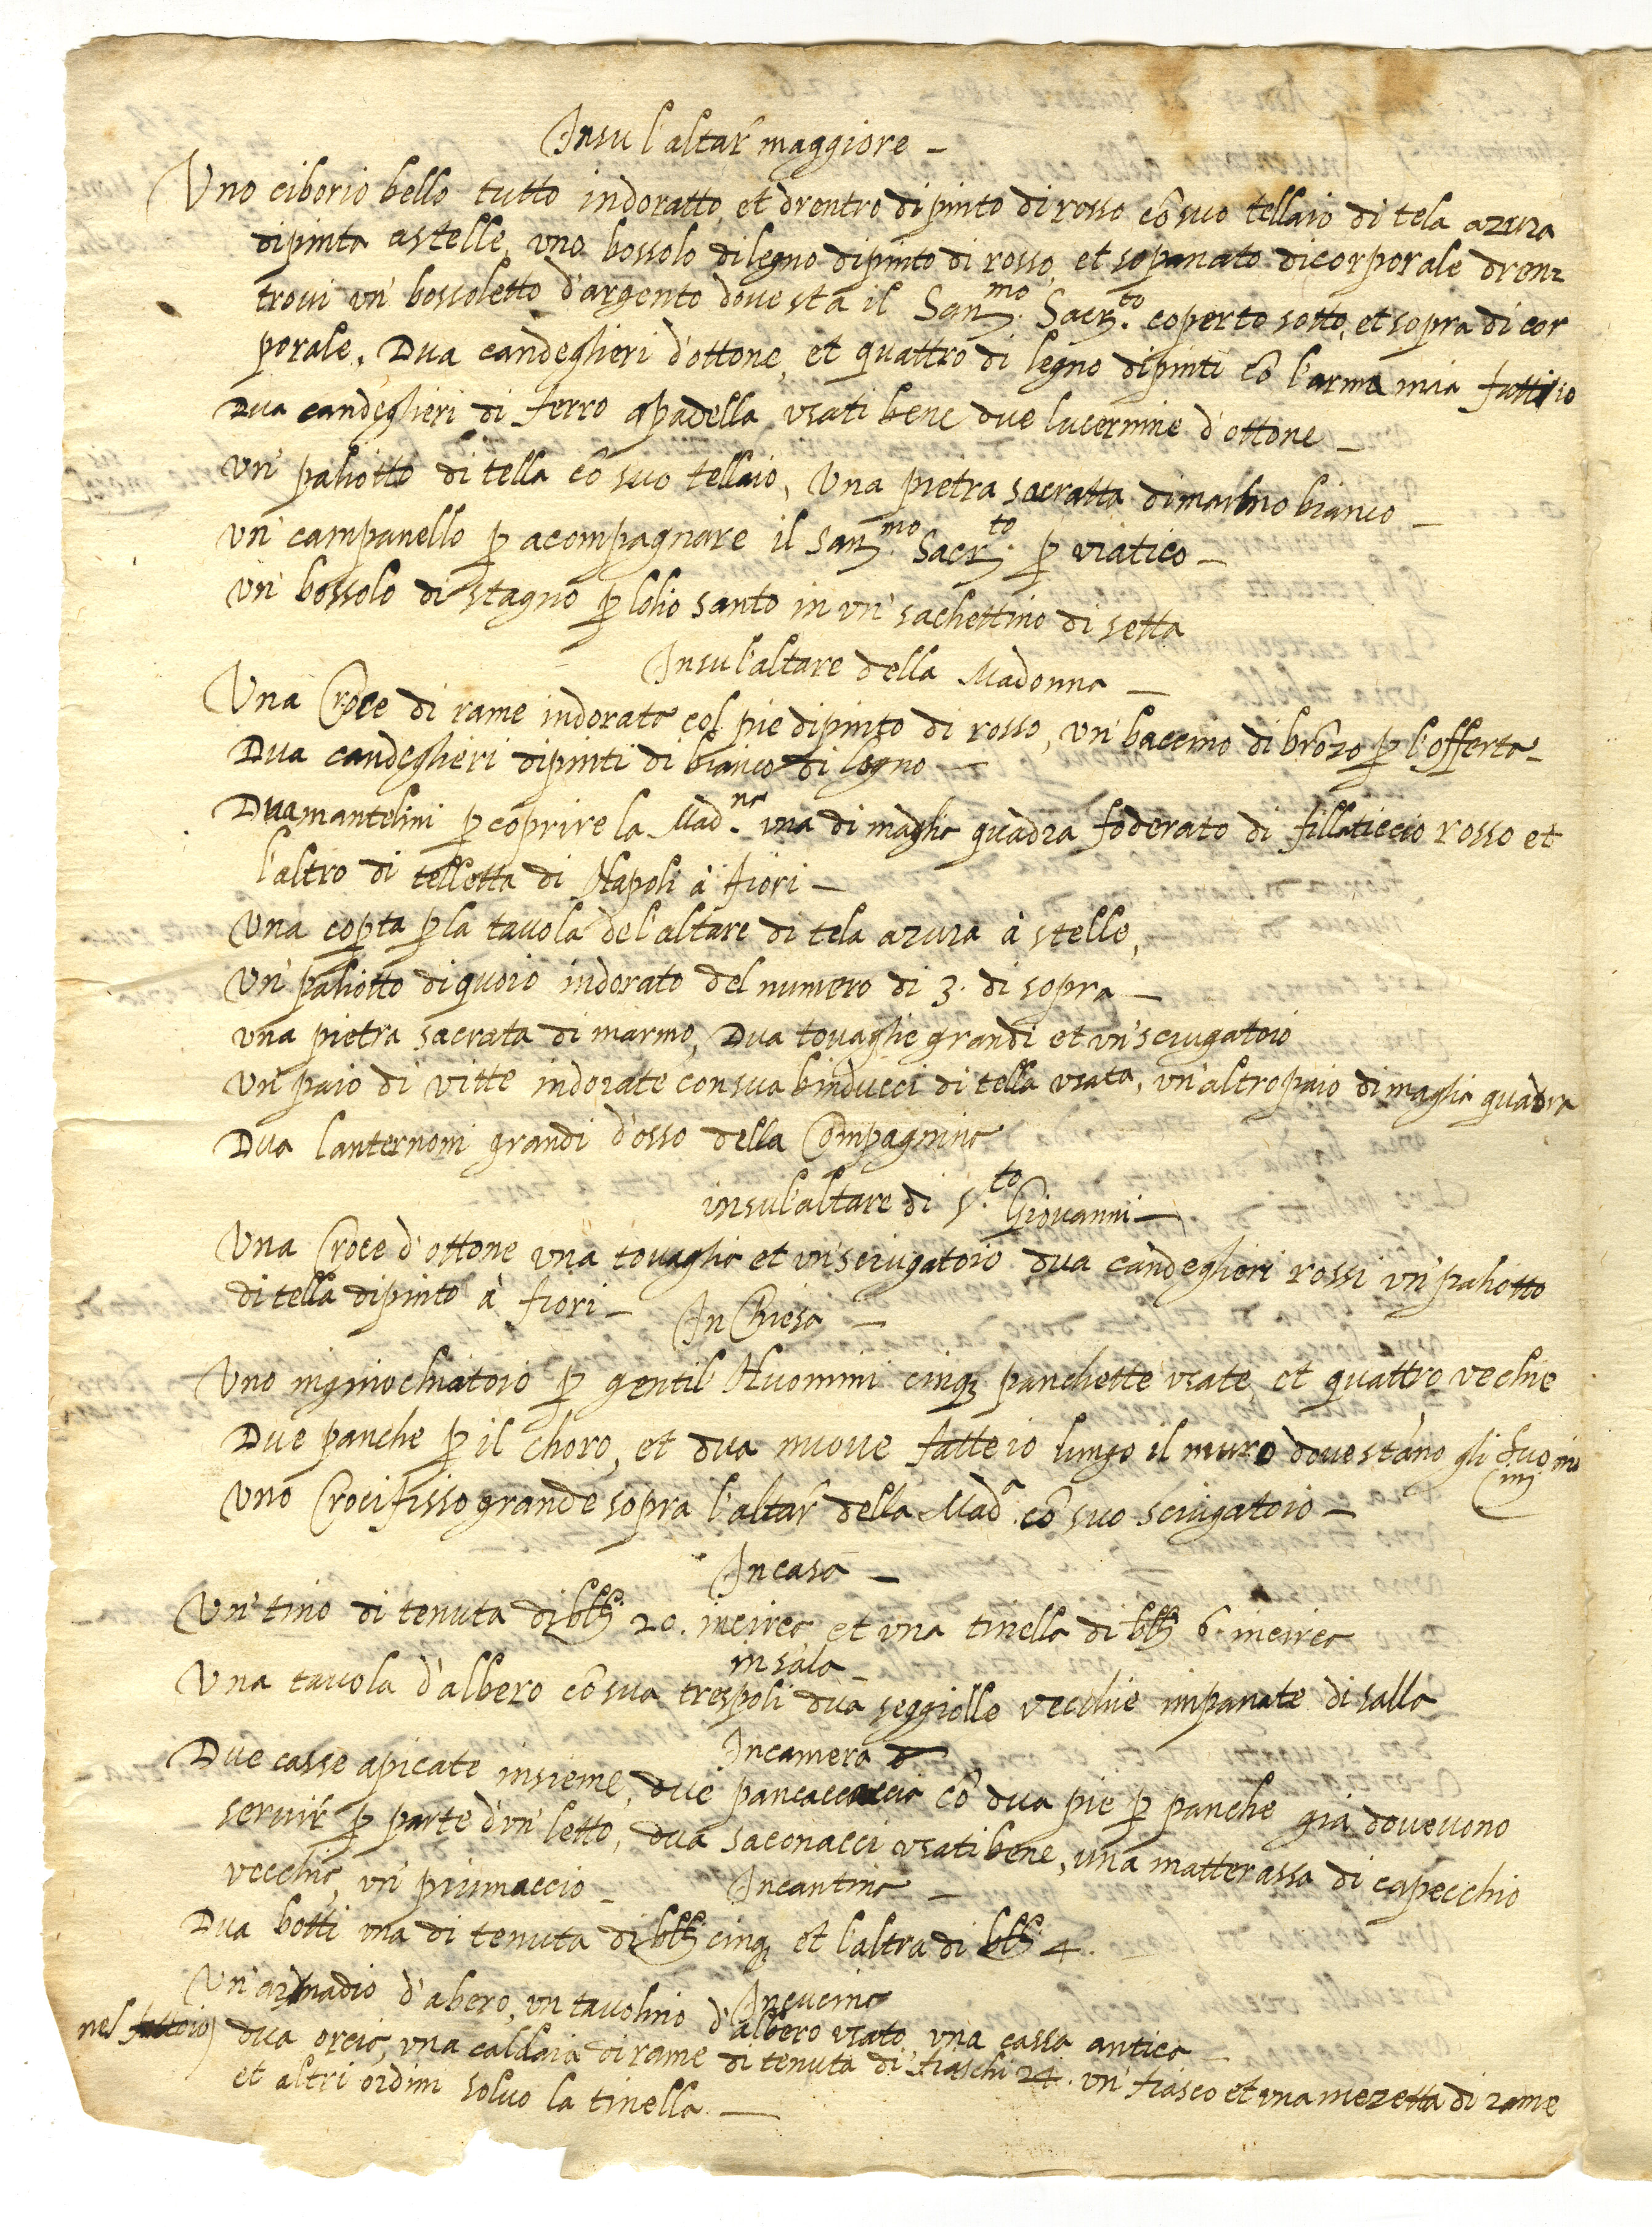 Insu l'altar' maggiore –
Uno ciborio bello tutto indoratto, et drentro dipinto di rosso cō suo tellaio di tela azura
dipinta astelle, uno bossolo di legno dipinto di rosso, et sopanato di corporale dren=
trovi un' bossoletto d'argento dove sta il San.mo Sacr.to coperto sotto, et sopra di cor
porale. Dua candeglieri d'ottone, et quattro di legno dipinti cō l'arma mia fatti io
Dua candeglieri di ferro apadella usati bene due lucernine d'ottone –
Un' paliotto di tella cō suo tellaio, Una pietra sacratta di marmo bianco –
Un' campanello p acompagnare il San.mo Sacr.to p viatico –
Un' bossolo di stagno p lolio santo in un' sachettino di setta
Insu l'altare della Madonna –
Una Croce di rame indorata col pie dipinto di rosso, un' baccino di brōzo p l'offerta –
Dua candeglieri dipinti di bianco di legno –
Dua mantelini p coprire la Mad.na una di maglia quadra foderato di fillaticcio rosso et
l'altro di telletta di Napoli à fiori –
Una copta p la tavola del'altare di tela azura à stelle,
Un' paliotto di quoio indorato del numero di 3. di sopra –
una pietra sacrata di marmo, Dua tovaglie grandi et un' sciugatoio
Un' paio di vitte indorate con sua binducci di tella usata, un'altro paio di maglia quadra
Dua lanternoni grandi d'osso della Compagnina
insul'altare di S.to Giovanni –
Una Croce d'ottone una tovaglia et un' sciugatoio dua candeglieri rossi un' paliotto
di tella dipinto à fiori –
In Chiesa –
Uno inginochiatoio p gentil' Huomini cinq; panchette usate et quattro vechie
Due panche p il choro, et dua nuove fatte io lungo il muro dove stāno gli huomi
ni
Uno Crocifisso grande sopra l'altar' della Mad.a cō suo sciugatoio –
In casa –
Un' tino di tenuta di bll 20. incirca et una tinella di bll 6. incirca
in sala
Una tavola d'albero cō sua trespoli dua seggiolle vecchie impanate di salla
In camera
Due casse apicate insieme, due pancaccia cō dua pie p panche già dovevono
servir' p parte d'un' letto, dua saconacci usati bene, una matterassa di capecchio
vecchia, un' piumaccio –
In cantina –
Dua botti una di tenuta di bll cinq; et l'altra di bll 4.
In cucina
Un' armadio d'abero, un tavolino d'albero usato una cassa antica –
nel fattoio) dua orcia, una caldaia di rame di tenuta di fiaschi 24. un' fiasco et una mezetta di rame
et altri ordini solvo la tinella. –